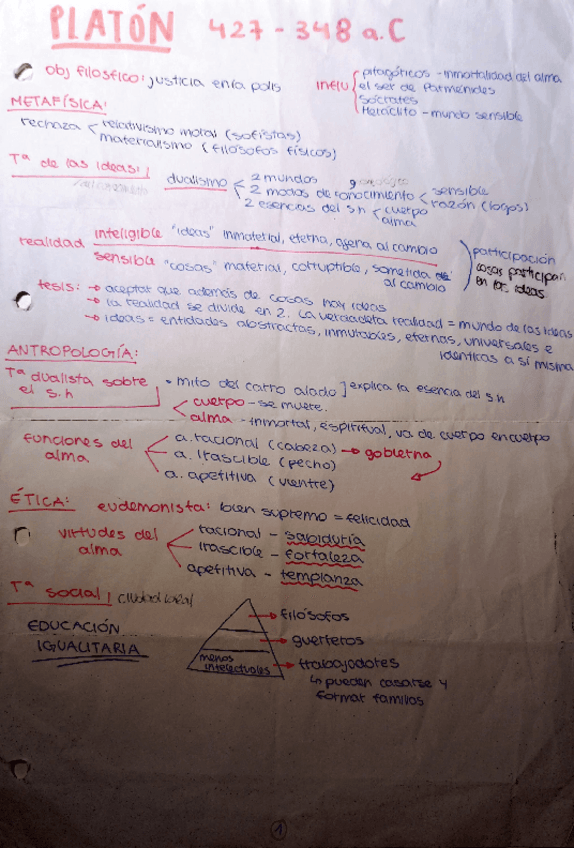 PLATÓN 427 - 348 a.C
obj filosfico: justicia en la polis
influ
pitagóricos - inmortalidad del alma
el ser de Parménides
Sócrates
Heráclito - mundo sensible
METAFÍSICA:
rechaza
relativismo moral (sofistas)
materialismo (filósofos físicos)
Tª de las ideas:
dualismo
2 mundos
2 modos de conocimiento
sensible
razón (logos)
2 esencias del s h
cuerpo
alma
realidad
inteligible "ideas" inmaterial, eterna, ajena al cambio
sensible "cosas" material, corruptible, sometida al cambio
participación
cosas participan
en las ideas
tesis: → aceptar que además de cosas hay ideas
→ la realidad se divide en 2. La verdadera realidad = mundo de las ideas
→ ideas = entidades abstractas, inmutables, eternas, universales e
identicas a sí misma
ANTROPOLOGÍA:
Tª dualista sobre
el s.h
mito del carro alado] explica la esencia del s h
cuerpo - se muere.
alma - inmortal, espiritual, va de cuerpo en cuerpo
funciones del
alma
a. racional (cabeza) → gobierna
a. irascible (pecho)
a. apetitiva (vientre)
ÉTICA: eudemonista: bien supremo = felicidad
virtudes del
alma
racional - sabiduría
irascible - fortaleza
apetitiva - templanza
Tª social / ciudad ideal
EDUCACIÓN
IGUALITARIA
→ filósofos
→ guerreros
menos
intelectuales
→ trabajadores
↳ pueden casarse y
formar familias
1